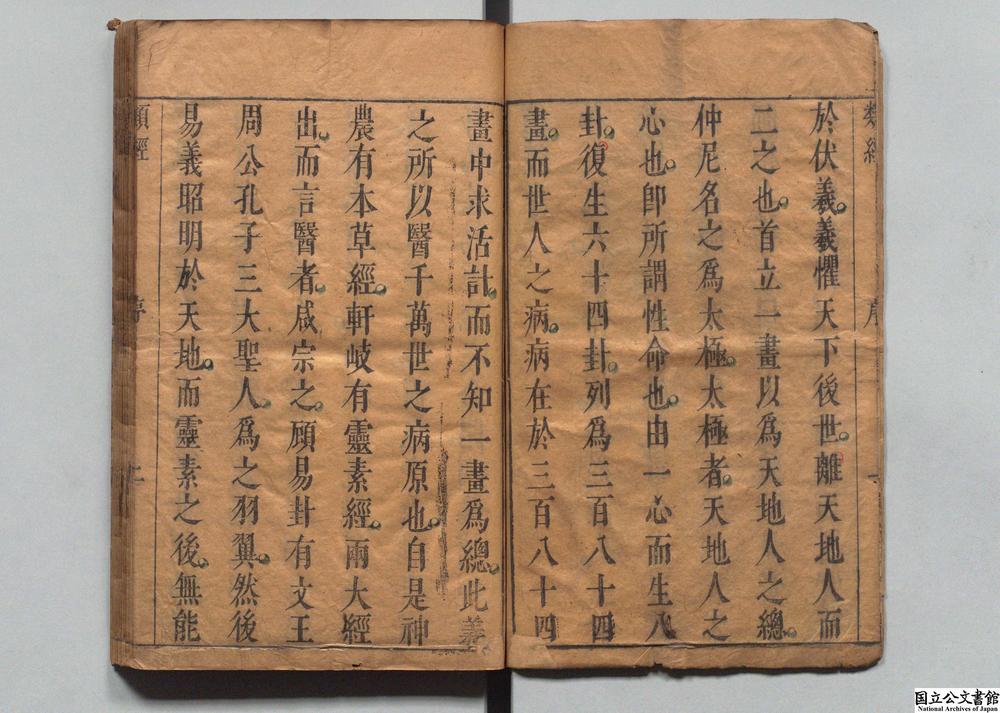 類經 序 一
於伏羲羲懼天下後世離天地人而
二之也首立一畫以爲天地人之總
仲尼名之爲太極太極者天地人之
心也卽所謂性命也由一心而生八
卦復生六十四卦列爲三百八十四
畫而世人之病病在於三百八十四
畫中求活計而不知一畫爲總此羲
之所以醫千萬世之病原也自是神
農有本草經軒岐有靈素經兩大經
出而言醫者咸宗之顧易卦有文王
周公孔子三大聖人爲之羽翼然後
易義昭明於天地而靈素之後無能
類經 序
国立公文書館
National Archives of Japan